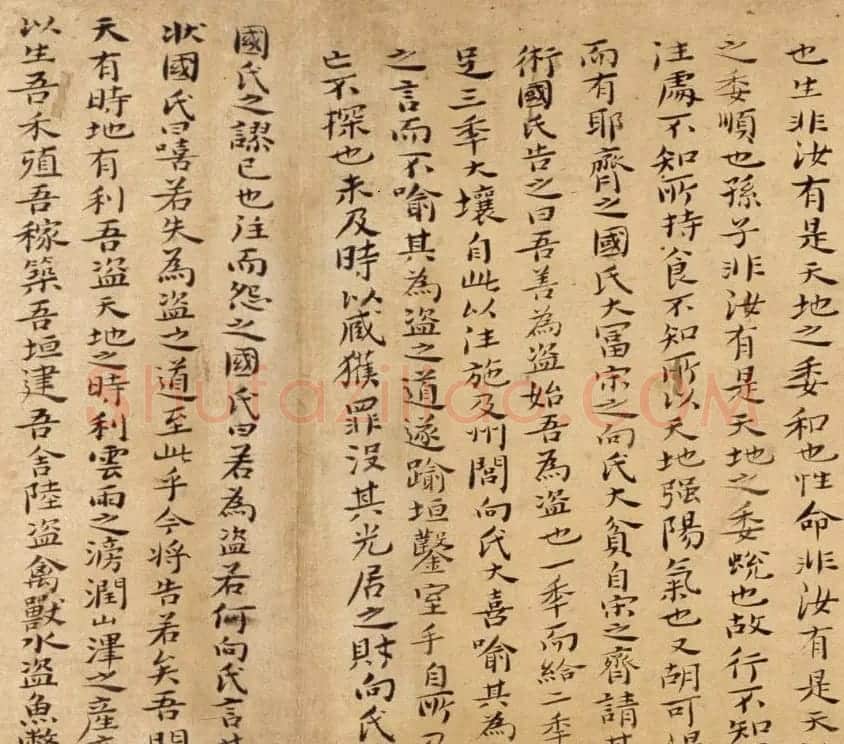 也生非汝有是天地之委和也性命非汝有是天
之委順也孫子非汝有是天地之委蛻也故行不知
注處不知所持食不知所以天地强陽氣也又胡可
而有耶齊之國氏大冨宋之向氏大貧自宋之齊請其
術國氏告之曰吾善為盗始吾為盗也一秊而給二秊
足三秊大壤自此以注施及州閭向氏大喜喻其為
之言而不喻其為盗之道遂踰垣鑿室手自所
亡不探也未及時以蔵獲罪没其光居之財向氏
國氏之謬已也注而怨之國氏曰若為盗若何向氏言其
状國氏曰嘻若失為盗之道至此乎今將告若矣吾聞
天有時地有利吾盗天地之時利雲雨之滂潤山澤之産
以生吾禾殖吾稼築吾垣建吾舎陸盗禽獸水盗魚鱉